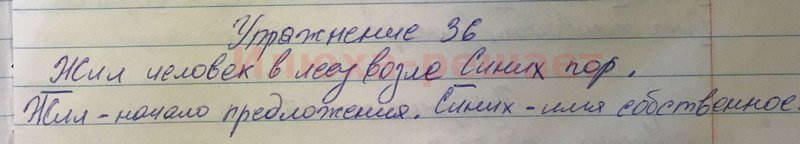 Упражнение 36
Жил человек в лесу возле Синих пор.
Жил - начало предложения. Синих - имя собственное.